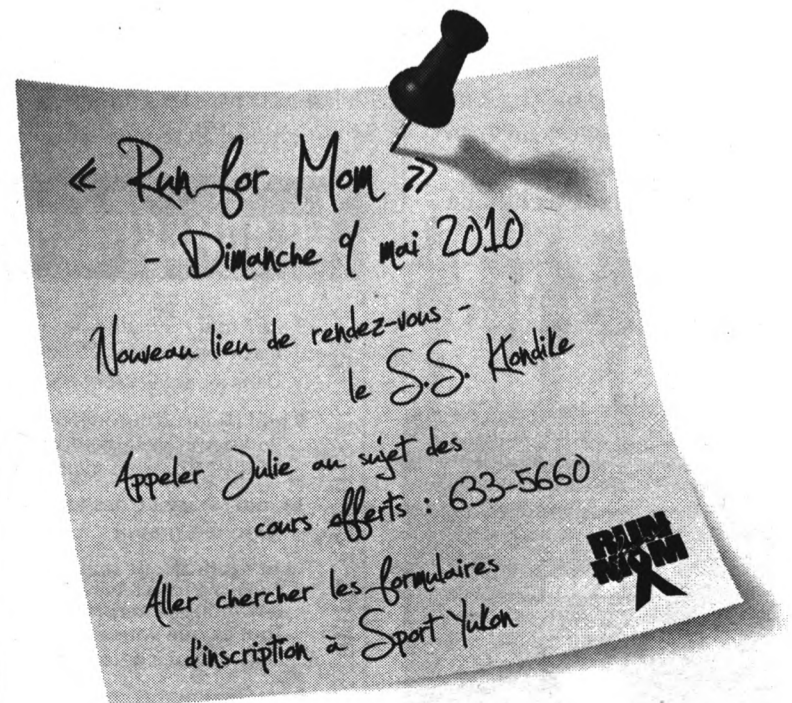 « Run for Mom »
- Dimanche 9 mai 2010
Nouveau lieu de rendez-vous -
le S.S. Klondike
Appeler Julie au sujet des
cours offerts : 633-5660
Aller chercher les formulaires
d'inscription à Sport Yukon
RUN
MOM